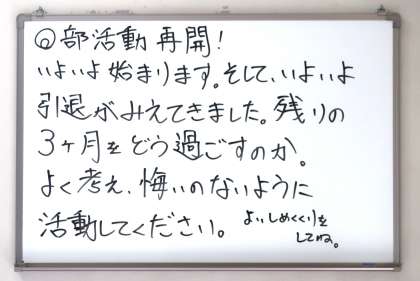 ◎部活動再開！
いよいよ始まります。そして、いよいよ
引退がみえてきました。残りの
3ヶ月をどう過ごすのか。
よく考え、悔いのないように
活動してください。
よいしめくくりを
してね。